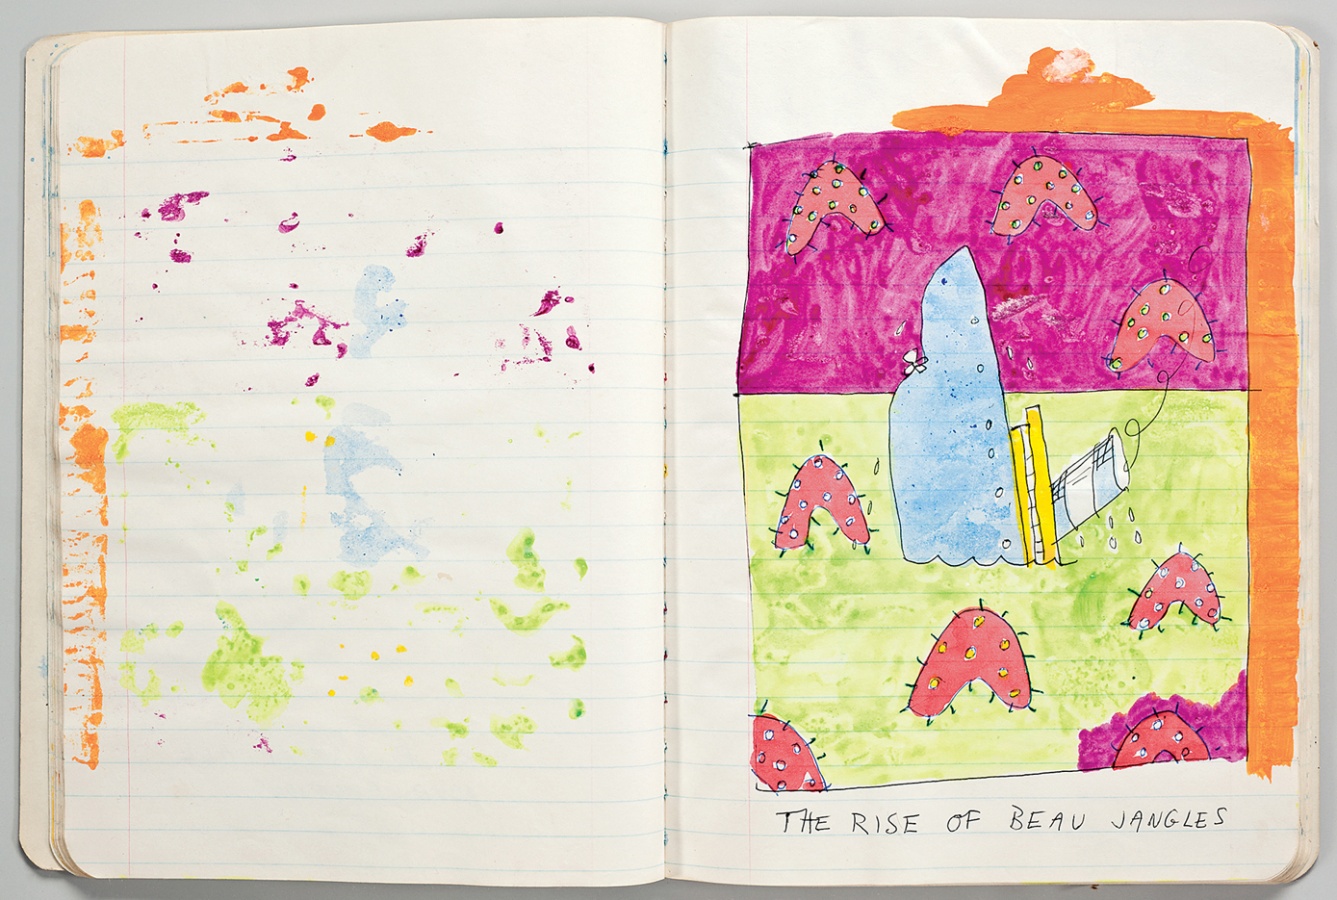 THE RISE OF BEAU JANGLES